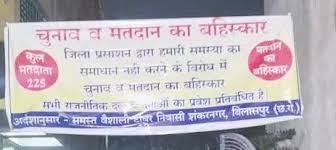 चुनाव व मतदान का बहिस्कार
कुल
मतदाता
225
जिला प्रशासन द्वारा हमारी समस्या का
समाधान नही करने के विरोध में
चुनाव व मतदान का बहिस्कार
मतदान
का
बहिस्कार
सभी राजनीतिक दल का प्रवेश प्रतिबंधित है।
आदेशानुसार - समस्त वैशाली टावर निवासी शंकरनगर, बिलासपुर (छ.ग.)